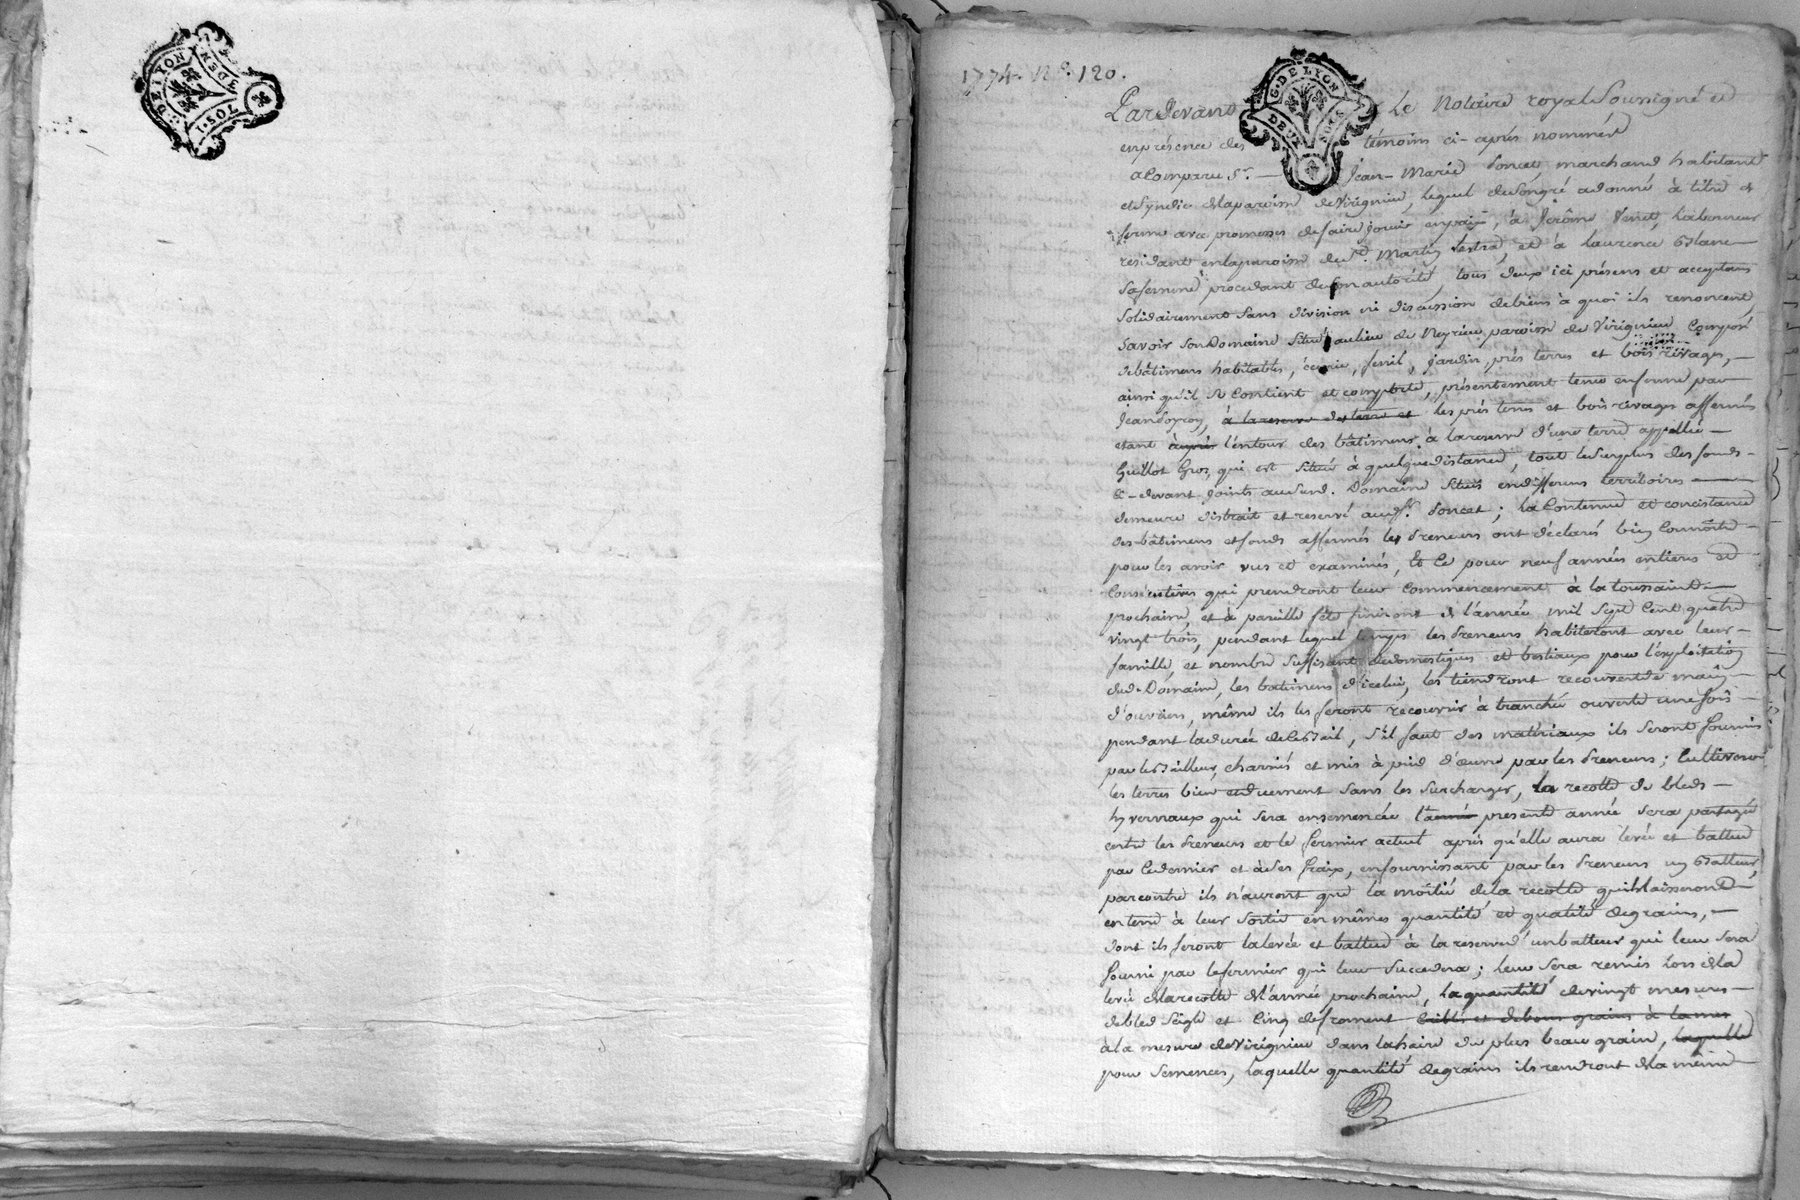 G. DE LYON
DEUX SOLS
1774. N°. 120.
G. DE LYON
DEUX SOLS
Pardevant Le Notaire royal Soussigné et
enprésence des témoins ci-après nommés
a Comparu Sr. — Jean-Marie Poncet, marchand habitant
et Syndic delaparoisse de Virignieu, lequel desongré adonné à titre de
ferme avec promesses defaire jouir enpaix, à Jerôme Venet, Laboureur
residant enlaparoisse de St. Martin Lestra, et à Laurence Blanc —
safemme procedant desonautorité, tous deux ici présens et acceptans
Solidairement sans division ni discussion debiens à quoi ils renoncent,
Savoir sonDomaine Situé aulieu de Neyrieu paroisse de Virignieu Composé
debâtimens habitables, écurie, fenil, jardin, prés terres et bois rivages, —
ainsi qu'il se Contient et comporte, présentement tenu enferme par
Jean à la reserve des terres et les prés terres et bois rivages affermés
etant après l'entour des bâtimens à lareserve d'une terre appellée —
Guillot Gros, qui est située à quelquedistance, tout lesurplus des fonds —
Ci-devant joints audevd. Domaine Situés endifferens territoires —
demeure distrait et reservé audSr. Poncet; la Contenue et concistance
des bâtimens etfonds affermés les Preneurs ont déclarés bien Connoître —
pour les avoir vus et examinés, Et Ce pour neuf années entieres et —
Consécutives qui prendront leur Commencement à la toussaint —
prochaine, et à pareille fête finiront de l'année mil sept Cent quatre
vingt trois, pendant lequel temps les Preneurs habiteront avec leur —
famille, et nombre suffisant dedomestiques et bestiaux pour l'exploitation
dud. Domaine, les batimens d'icelui, les tiendront recouvertde main —
d'ouvriers, même ils les feront recouvrir à tranché ouverte une fois —
pendant ladurée deceBail, s'il faut des matériaux ils seront fournis
par leBailleur, charriés et mis à pied d'œuvre par les Preneurs; Cultiveront
les terres bien etduement sans les surcharger, la recolte de bleds —
hyvernaux qui sera ensemencée l'année presente année sera partagée
entre les Preneurs et le fermier actuel après qu'elle aura levée et battue
par Cedernier et àses fraix, enfournissant par les Preneurs un Batteur,
parcontre ils n'auront que la moitié dela recolte qu'ilslaisseront —
enterre à leur sortie en mêmes quantité et qualité degrains, —
dont ils feront lalevée et battue à lareserve d'unbatteur qui leur sera
fourni par lefermier qui leur succedera; Leur sera remis lors dela
levée delarecolte del'année prochaine, la quantité devingt mesures —
debled seigle et Cinq defroment criblé et debons grains à la mes
àla mesure deVirignieu dans lahaire du plus beau grain, laquelle
pour Semences, laquelle quantité degrains ils rendront dela même —